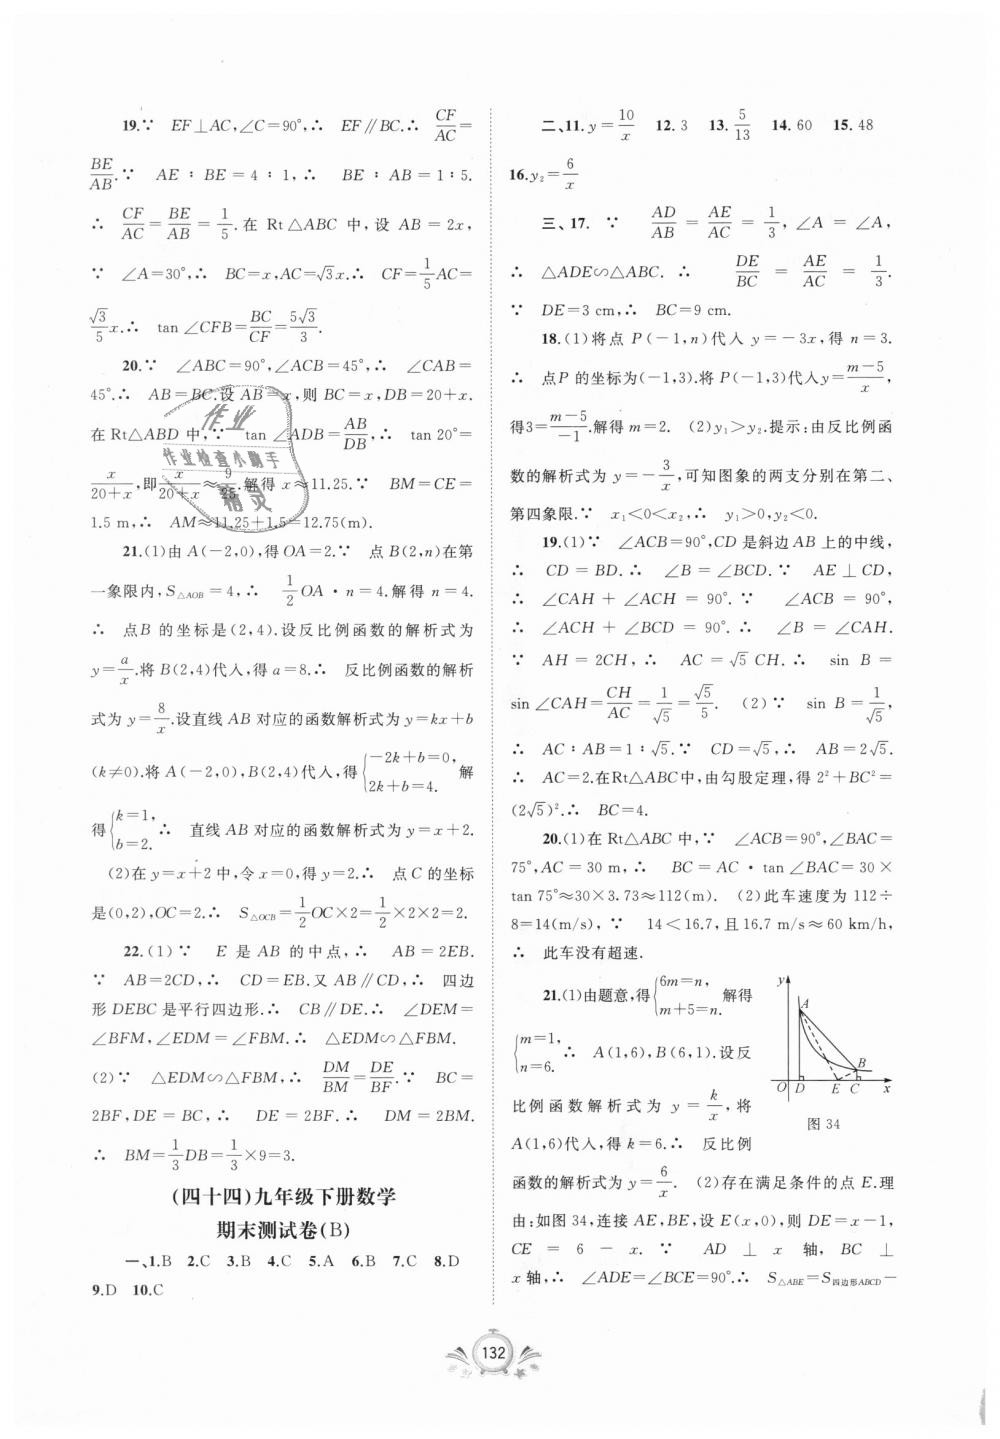 19.∵ EF⊥AC,∠C=90°,∴ EF∥BC.∴ CF/AC=
BE/AB.∵ AE∶BE=4∶1,∴ BE∶AB=1∶5.
∴ CF/AC=BE/AB=1/5.在 Rt△ABC 中,设 AB=2x,
∵ ∠A=30°,∴ BC=x,AC=√3x.∴ CF=1/5AC=
√3/5x.∴ tan∠CFB=BC/CF=5√3/3.
20.∵ ∠ABC=90°,∠ACB=45°,∴ ∠CAB=
45°.∴ AB=BC.设 AB=x,则 BC=x,DB=20+x.
在 Rt△ABD 中,∵ tan∠ADB=AB/DB,∴ tan 20°=
x/(20+x),即x/(20+x)≈9/25.解得 x≈11.25.∵ BM=CE=
1.5 m,∴ AM≈11.25+1.5=12.75(m).
21.(1)由 A(-2,0),得 OA=2.∵ 点 B(2,n)在第
一象限内,S△AOB=4,∴ 1/2OA·n=4.解得 n=4.
∴ 点B 的坐标是(2,4).设反比例函数的解析式为
y=a/x.将 B(2,4)代入,得 a=8.∴ 反比例函数的解析
式为 y=8/x.设直线 AB 对应的函数解析式为 y=kx+b
(k≠0).将 A(-2,0),B(2,4)代入,得{-2k+b=0, 2k+b=4. 解
得{k=1, b=2. ∴ 直线 AB 对应的函数解析式为 y=x+2.
(2)在 y=x+2 中,令 x=0,得 y=2.∴ 点 C 的坐标
是(0,2),OC=2.∴ S△OCB=1/2OC×2=1/2×2×2=2.
22.(1)∵ E 是 AB 的中点,∴ AB=2EB.
∵ AB=2CD,∴ CD=EB.又 AB∥CD,∴ 四边
形 DEBC 是平行四边形.∴ CB∥DE.∴ ∠DEM=
∠BFM,∠EDM=∠FBM.∴ △EDM∽△FBM.
(2)∵ △EDM∽△FBM,∴ DM/BM=DE/BF.∵ BC=
2BF,DE=BC,∴ DE=2BF.∴ DM=2BM.
∴ BM=1/3DB=1/3×9=3.
(四十四)九年级下册数学
期末测试卷(B)
一、1.B 2.C 3.B 4.C 5.A 6.B 7.C 8.D
9.D 10.C
作业
作业检查小助手
精灵
二、11.y=10/x 12.3 13.5/13 14.60 15.48
16.y₂=6/x
三、17.∵ AD/AB=AE/AC=1/3,∠A=∠A,
∴ △ADE∽△ABC.∴ DE/BC=AE/AC=1/3.
∵ DE=3 cm,∴ BC=9 cm.
18.(1)将点 P(-1,n)代入 y=-3x,得 n=3.
∴ 点P 的坐标为(-1,3).将 P(-1,3)代入y=(m-5)/x,
得3=(m-5)/-1.解得 m=2. (2)y₁>y₂.提示:由反比例函
数的解析式为 y=-3/x,可知图象的两支分别在第二、
第四象限.∵ x₁<0<x₂,∴ y₁>0,y₂<0.
19.(1)∵ ∠ACB=90°,CD 是斜边 AB 上的中线,
∴ CD=BD.∴ ∠B=∠BCD.∵ AE⊥CD,
∴ ∠CAH+∠ACH=90°.∵ ∠ACB=90°,
∴ ∠ACH+∠BCD=90°.∴ ∠B=∠CAH.
∵ AH=2CH,∴ AC=√5CH.∴ sin B=
sin∠CAH=CH/AC=1/√5=√5/5. (2)∵ sin B=1/√5,
∴ AC∶AB=1∶√5.∵ CD=√5,∴ AB=2√5.
∴ AC=2.在Rt△ABC中,由勾股定理,得 2²+BC²=
(2√5)².∴ BC=4.
20.(1)在 Rt△ABC 中,∵ ∠ACB=90°,∠BAC=
75°,AC=30 m,∴ BC=AC·tan∠BAC=30×
tan 75°≈30×3.73≈112(m). (2)此车速度为 112÷
8=14(m/s),∵ 14<16.7,且 16.7 m/s≈60 km/h,
∴ 此车没有超速.
21.(1)由题意,得{6m=n, m+5=n. 解得
{m=1, n=6. ∴ A(1,6),B(6,1).设反
比例函数解析式为 y=k/x,将
A(1,6)代入,得 k=6.∴ 反比例
函数的解析式为 y=6/x. (2)存在满足条件的点 E.理
由:如图 34,连接 AE,BE,设 E(x,0),则 DE=x-1,
CE=6-x.∵ AD⊥x 轴,BC⊥
x 轴,∴ ∠ADE=∠BCE=90°.∴ S△ABE=S四边形ABCD-
y
A
B
O D E C x
图 34
132